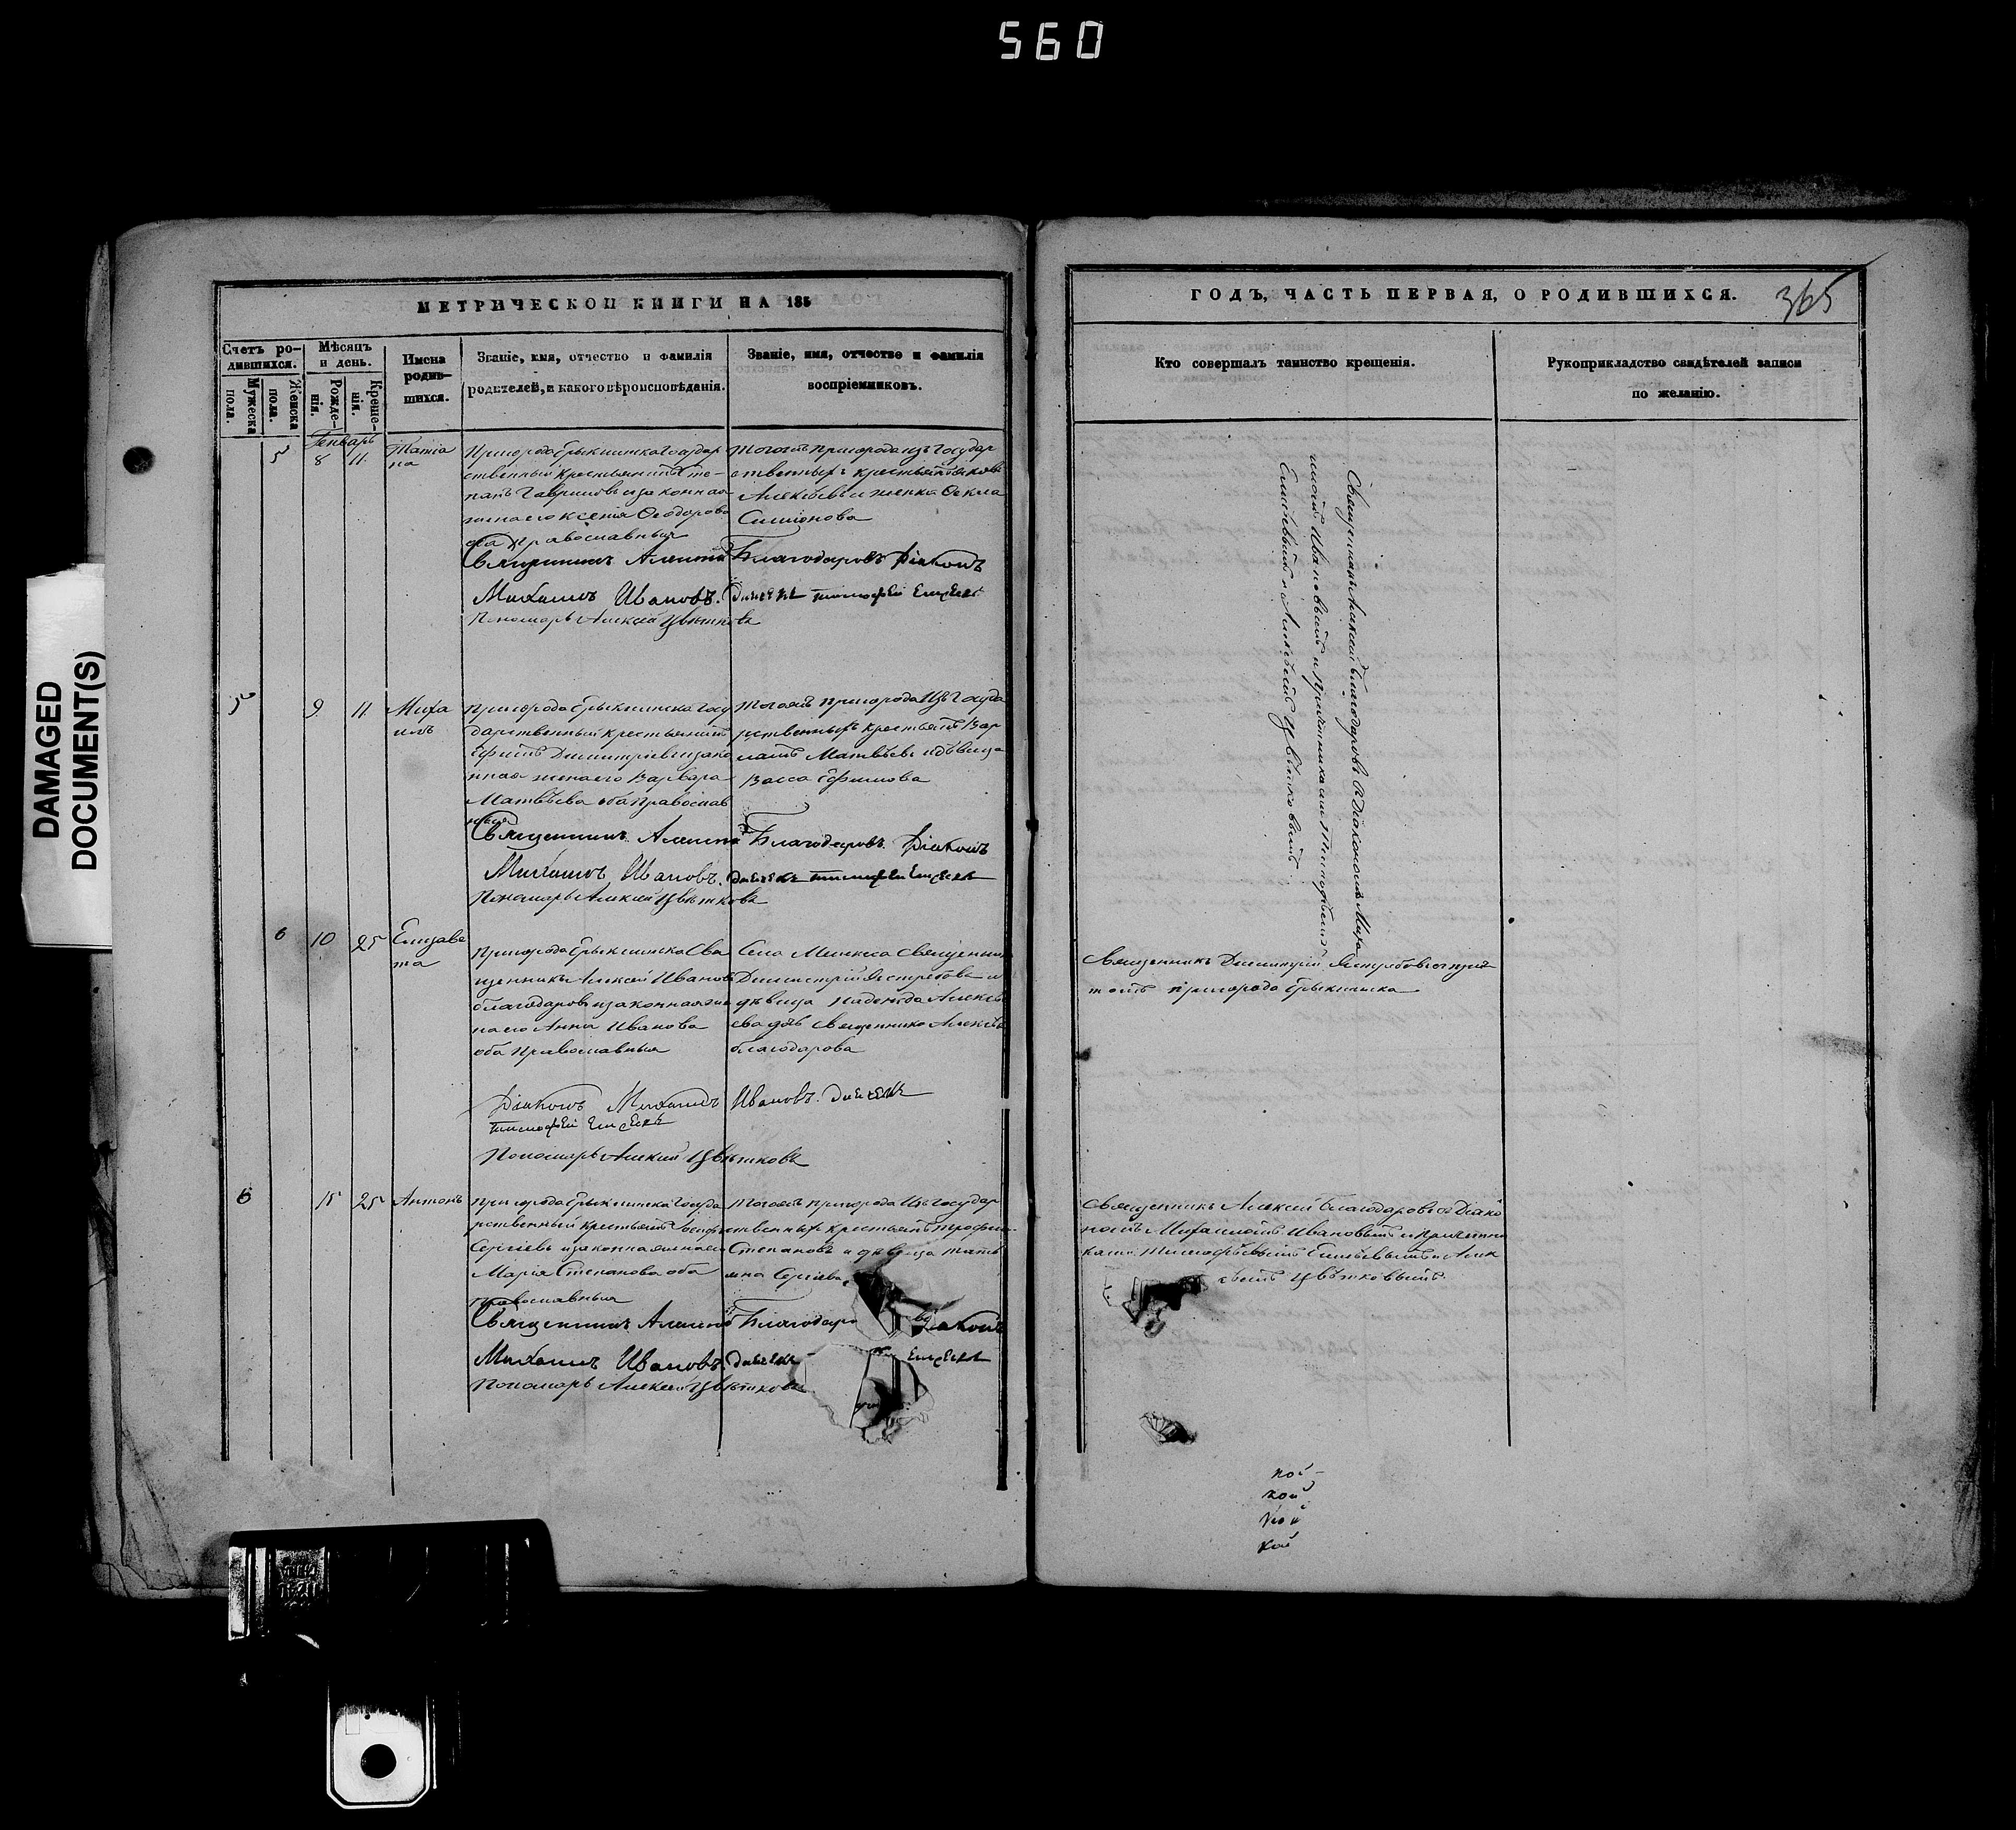 560
DAMAGED
DOCUMENT(S)
МЕТРИЧЕСКОЙ КНИГИ НА 185
Счетъ ро-
дившихся.
Мужеска
пола.
Женска
пола.
Мѣсяцъ
и день.
Рожде-
нія.
Креще-
нія.
Имена
родив-
шихся.
Званіе, имя, отчество и фамилія
родителей, и какого вѣроисповѣданія.
Званіе, имя, отчество и фамилія
воспріемниковъ.
Генварь
5 8 11.
Татіа
на
Пригорода Ерыклинска государ
ственный крестьянинъ Сте-
панъ Гавриловъ и законная
жена его Ксенія Ѳеодорова
оба православныя
тогожъ пригорода изъ государ
ственныхъ крестьянъ
Алексѣевъ и женка Ѳекла
Симионова
Священникъ Алексій Благодаровъ Діаконъ
Михаилъ Ивановъ. Дьячекъ Тимофей Елисеевъ
Пономарь Алексей Цвѣтковъ
5 9 11.
Миха
илъ
Пригорода Ерыклинска госу
дарственный крестьянинъ
Ефимъ Димитріевъ и зако
нная жена его Варвара
Матвѣева оба православ
ныя
Тогожъ пригорода изъ госуда
рственныхъ крестьянъ Вар
ламъ Матвѣевъ и дѣвица
Васса Ефимова
Священникъ Алексій Благодаровъ. Діаконъ
Михаилъ Ивановъ. Дьячекъ Тимофей Елисеевъ
Пономарь Алексей Цвѣтковъ
6 10 25
Елизаве
та
Пригорода Ерыклинска Свя
щенникъ Алексей Ивановъ
Благодаровъ и законная же
на его Анна Иванова
оба православныя
Села Мелекеса Священникъ
Димитрій Ястребовъ и
дѣвица Надежда Алексѣ
ева дочь священника Алексѣя
Благодарова
Діаконъ Михаилъ Ивановъ. Дьячекъ
Тимофей Елисеевъ
Пономарь Алексей Цвѣтковъ
6 15 25 Антонъ
Пригорода Ерыклинска госуда
рственный крестьянинъ
Сергіевъ и законная жена его
Марія Степанова оба
православныя
Тогожъ пригорода изъ государ
ственныхъ крестьянъ Трофим
Степановъ и дѣвица Тать
яна Сергіева
Священникъ Алексій Благодаро въ Діаконъ
Михаилъ Ивановъ. Дьячекъ Елисеевъ
Пономарь Алексей Цвѣтковъ
ГОДЪ, ЧАСТЬ ПЕРВАЯ, О РОДИВШИХСЯ.
365
Кто совершалъ таинство крещенія.
Рукоприкладство свидѣтелей записи
по желанію.
Священникъ Алексій Благодаровъ съ Діакономъ Миха
иломъ Ивановымъ и причетниками Тимофѣемъ
Елисѣевымъ и Алексѣемъ Цвѣтковымъ
Священникъ Димитрій Ястребовъ съ прич
томъ пригорода Ерыклинска
Священникъ Алексей Благодаровъ съ Діако
номъ Михаиломъ Ивановымъ и причетни
ками Тимофѣемъ Елисѣевымъ и Алек
сѣемъ Цвѣтковымъ
кой